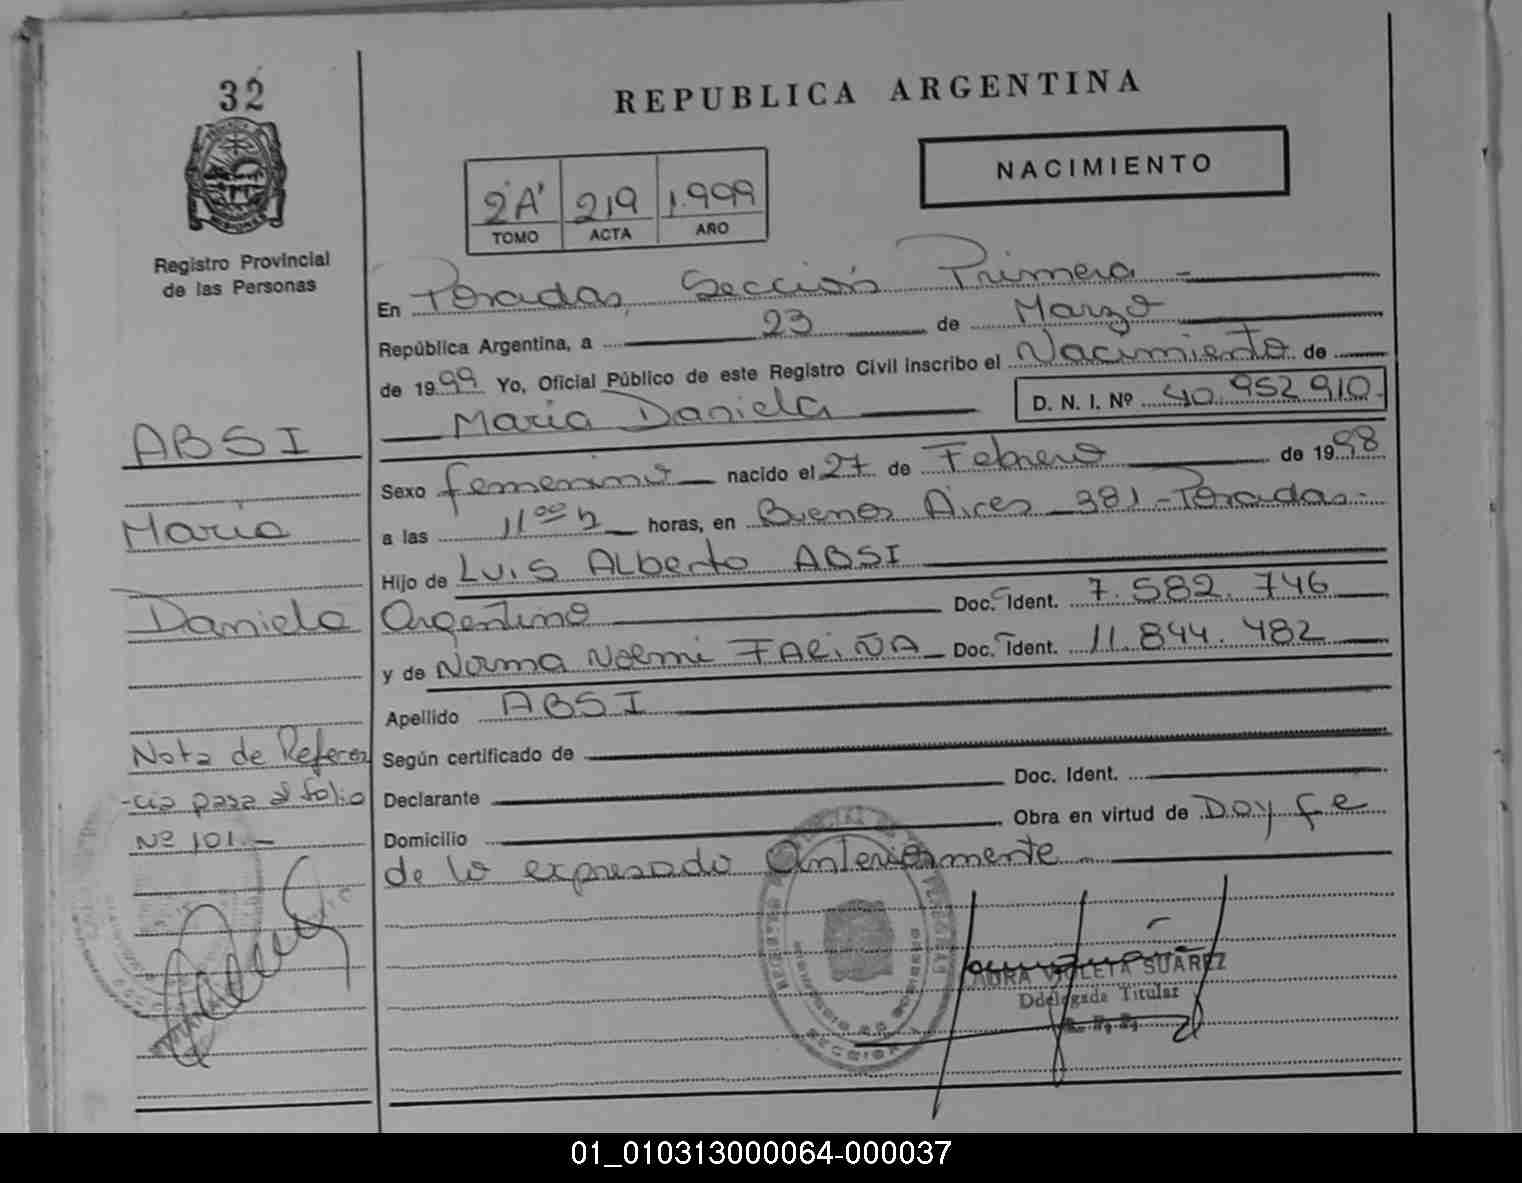 32
Registro Provincial
de las Personas
REPUBLICA ARGENTINA
NACIMIENTO
2"A" 219 1.999
TOMO ACTA AÑO
En Posadas, Sección Primera
República Argentina, a 23 de Marzo
de 1999 Yo, Oficial Público de este Registro Civil inscribo el Nacimiento de
Maria Daniela D. N. I. Nº 40.952.910.
Sexo femenino nacido el 27 de Febrero de 1998
a las 11 00 h horas, en Buenos Aires 381 - Posadas -
Hijo de Luis Alberto ABSI
Argentino Doc. Ident. 7.582.746
y de Norma Noemi FARIÑA Doc. Ident. 11.844.482
Apellido ABSI
Según certificado de
Declarante Doc. Ident.
Domicilio Obra en virtud de Doy fe
de lo expresado anteriormente
ABSI
Maria
Daniela
Nota de Referen
-cia pasa al folio
Nº 101.-
LAURA VIOLETA SUÁREZ
Ddelegada Titular
R. P. P.
01_010313000064-000037